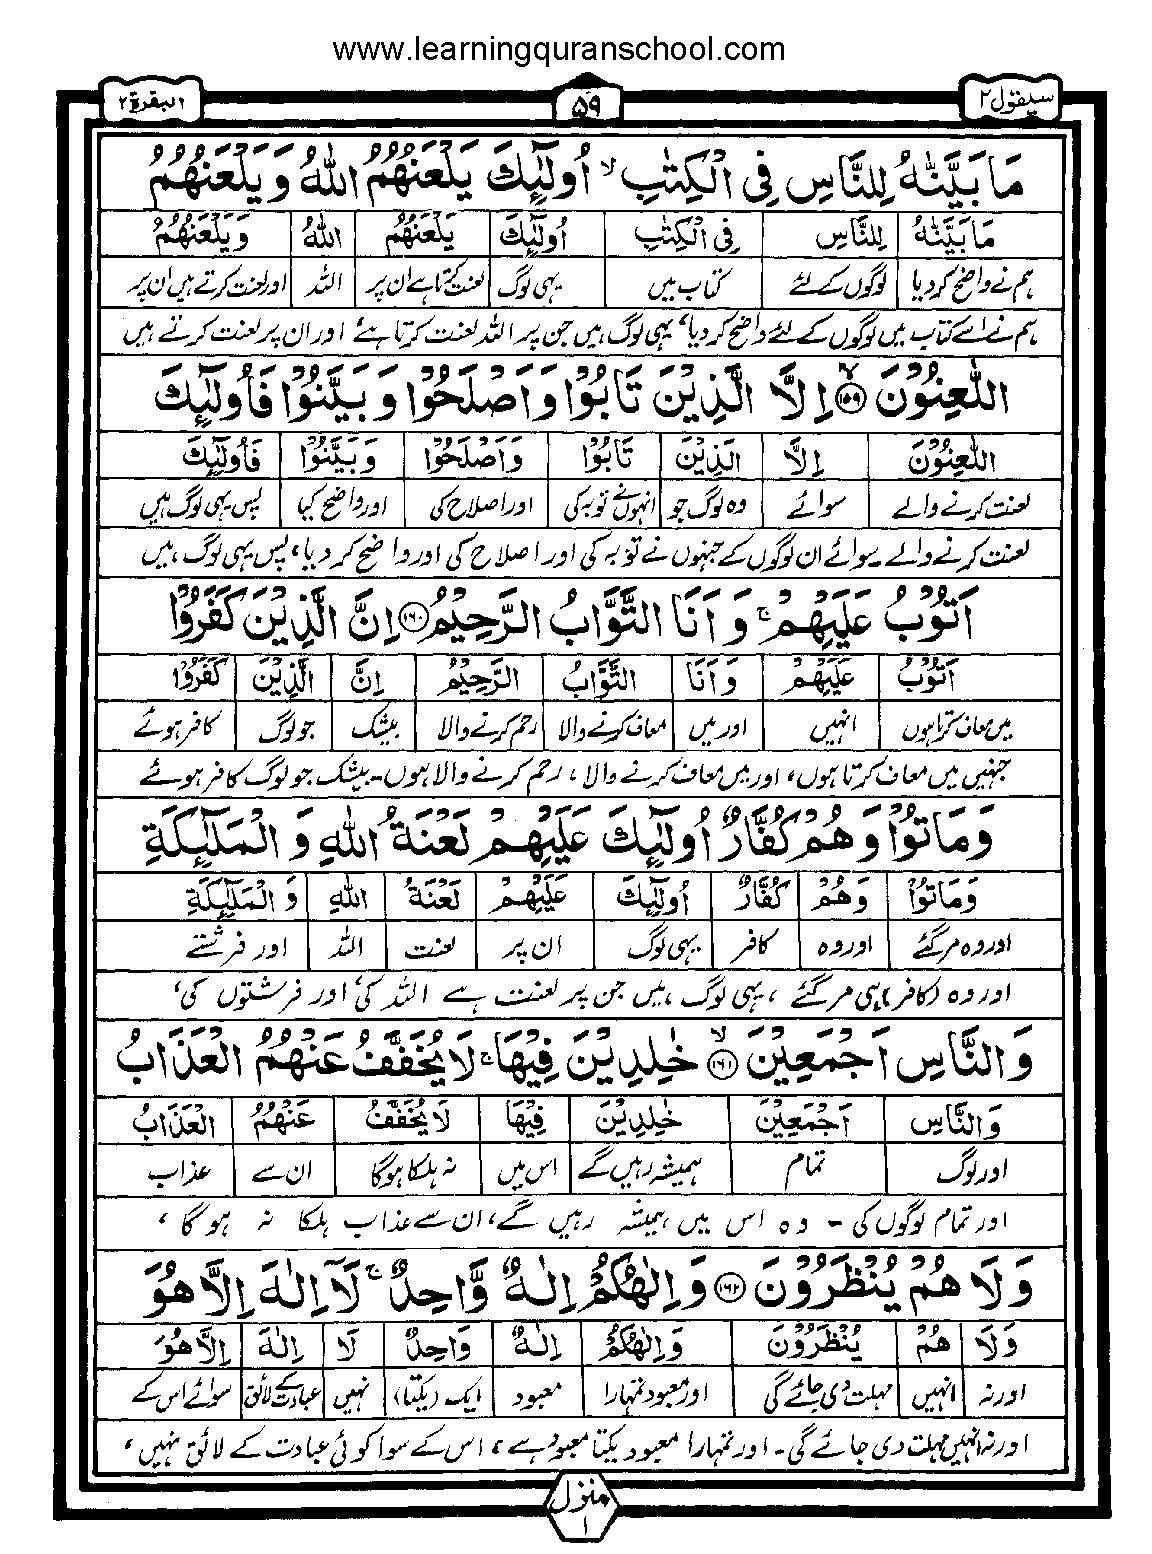 www.learningquranschool.com
سیقول ۲ ۵۹ البقرة ۲
مَا بَيَّنّٰهُ لِلنَّاسِ فِي الْكِتٰبِ ۙ اُولٰٓئِكَ يَلْعَنُهُمُ اللّٰهُ وَ يَلْعَنُهُمُ
مَا بَيَّنّٰهُ لِلنَّاسِ فِي الْكِتٰبِ اُولٰٓئِكَ يَلْعَنُهُمُ اللّٰهُ وَيَلْعَنُهُمُ
ہم نے واضح کردیا لوگوں کے لئے کتاب میں یہی لوگ لعنت کرتا ہے ان پر اللہ اور لعنت کرتے ہیں ان پر
ہم نے اسے کتاب میں لوگوں کے لئے واضح کر دیا، یہی لوگ ہیں جن پر اللہ لعنت کرتا ہے اور ان پر لعنت کرتے ہیں
اللّٰعِنُوْنَ ۱۵۹ۙ اِلَّا الَّذِيْنَ تَابُوْا وَ اَصْلَحُوْا وَ بَيَّنُوْا فَاُولٰٓئِكَ
اللّٰعِنُوْنَ اِلَّا الَّذِيْنَ تَابُوْا وَ اَصْلَحُوْا وَ بَيَّنُوْا فَاُولٰٓئِكَ
لعنت کرنے والے سوائے وہ لوگ جو انہوں نے توبہ کی اور اصلاح کی اور واضح کیا پس یہی لوگ ہیں
لعنت کرنے والے۔ سوائے ان لوگوں کے جنہوں نے توبہ کی اور اصلاح کی اور واضح کر دیا، پس یہی لوگ ہیں
اَتُوْبُ عَلَيْهِمْ ۚ وَ اَنَا التَّوَّابُ الرَّحِيْمُ ۱۶۰ اِنَّ الَّذِيْنَ كَفَرُوْا
اَتُوْبُ عَلَيْهِمْ وَ اَنَا التَّوَّابُ الرَّحِيْمُ اِنَّ الَّذِيْنَ كَفَرُوْا
میں معاف کرتا ہوں انہیں اور میں معاف کرنے والا رحم کرنے والا بیشک جو لوگ کافر ہوئے
جنہیں میں معاف کرتا ہوں، اور میں معاف کرنے والا، رحم کرنے والا ہوں۔ بیشک جو لوگ کافر ہوئے
وَ مَاتُوْا وَ هُمْ كُفَّارٌ اُولٰٓئِكَ عَلَيْهِمْ لَعْنَةُ اللّٰهِ وَ الْمَلٰٓئِكَةِ
وَ مَاتُوْا وَ هُمْ كُفَّارٌ اُولٰٓئِكَ عَلَيْهِمْ لَعْنَةُ اللّٰهِ وَ الْمَلٰٓئِكَةِ
اور وہ مر گئے اور وہ کافر یہی لوگ ان پر لعنت اللہ اور فرشتے
اور وہ (کافر) ہی مر گئے، یہی لوگ ہیں جن پر لعنت ہے اللہ کی اور فرشتوں کی،
وَ النَّاسِ اَجْمَعِيْنَ ۱۶۱ۙ خٰلِدِيْنَ فِيْهَا ۚ لَا يُخَفَّفُ عَنْهُمُ الْعَذَابُ
وَ النَّاسِ اَجْمَعِيْنَ خٰلِدِيْنَ فِيْهَا لَا يُخَفَّفُ عَنْهُمُ الْعَذَابُ
اور لوگ تمام ہمیشہ رہیں گے اس میں نہ ہلکا ہوگا ان سے عذاب
اور تمام لوگوں کی۔ وہ اس میں ہمیشہ رہیں گے، ان سے عذاب ہلکا نہ ہوگا،
وَ لَا هُمْ يُنْظَرُوْنَ ۱۶۲ وَ اِلٰهُكُمْ اِلٰهٌ وَّاحِدٌ ۚ لَآ اِلٰهَ اِلَّا هُوَ
وَ لَا هُمْ يُنْظَرُوْنَ وَ اِلٰهُكُمْ اِلٰهٌ وَاحِدٌ لَا اِلٰهَ اِلَّا هُوَ
اور نہ انہیں مہلت دی جائے گی اور معبود تمہارا معبود ایک (یکتا) نہیں عبادت کے لائق سوائے اس کے
اور نہ انہیں مہلت دی جائے گی۔ اور تمہارا معبود یکتا معبود ہے، اس کے سوا کوئی عبادت کے لائق نہیں،
منزل ۱